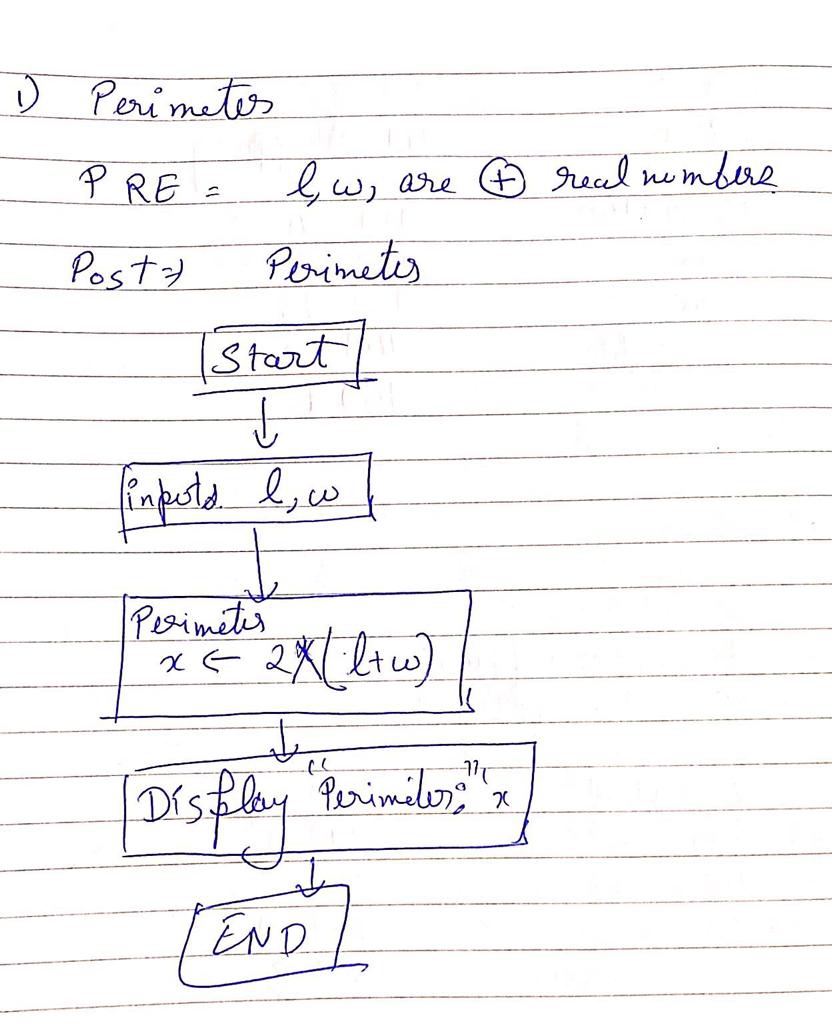 1) Perimeter
PRE = l, w, are ⊕ real numbers
Post ⇒ Perimeter
Start
inputs l, w
Perimeter
x ← 2*(l+w)
Display "Perimeter:", x
END